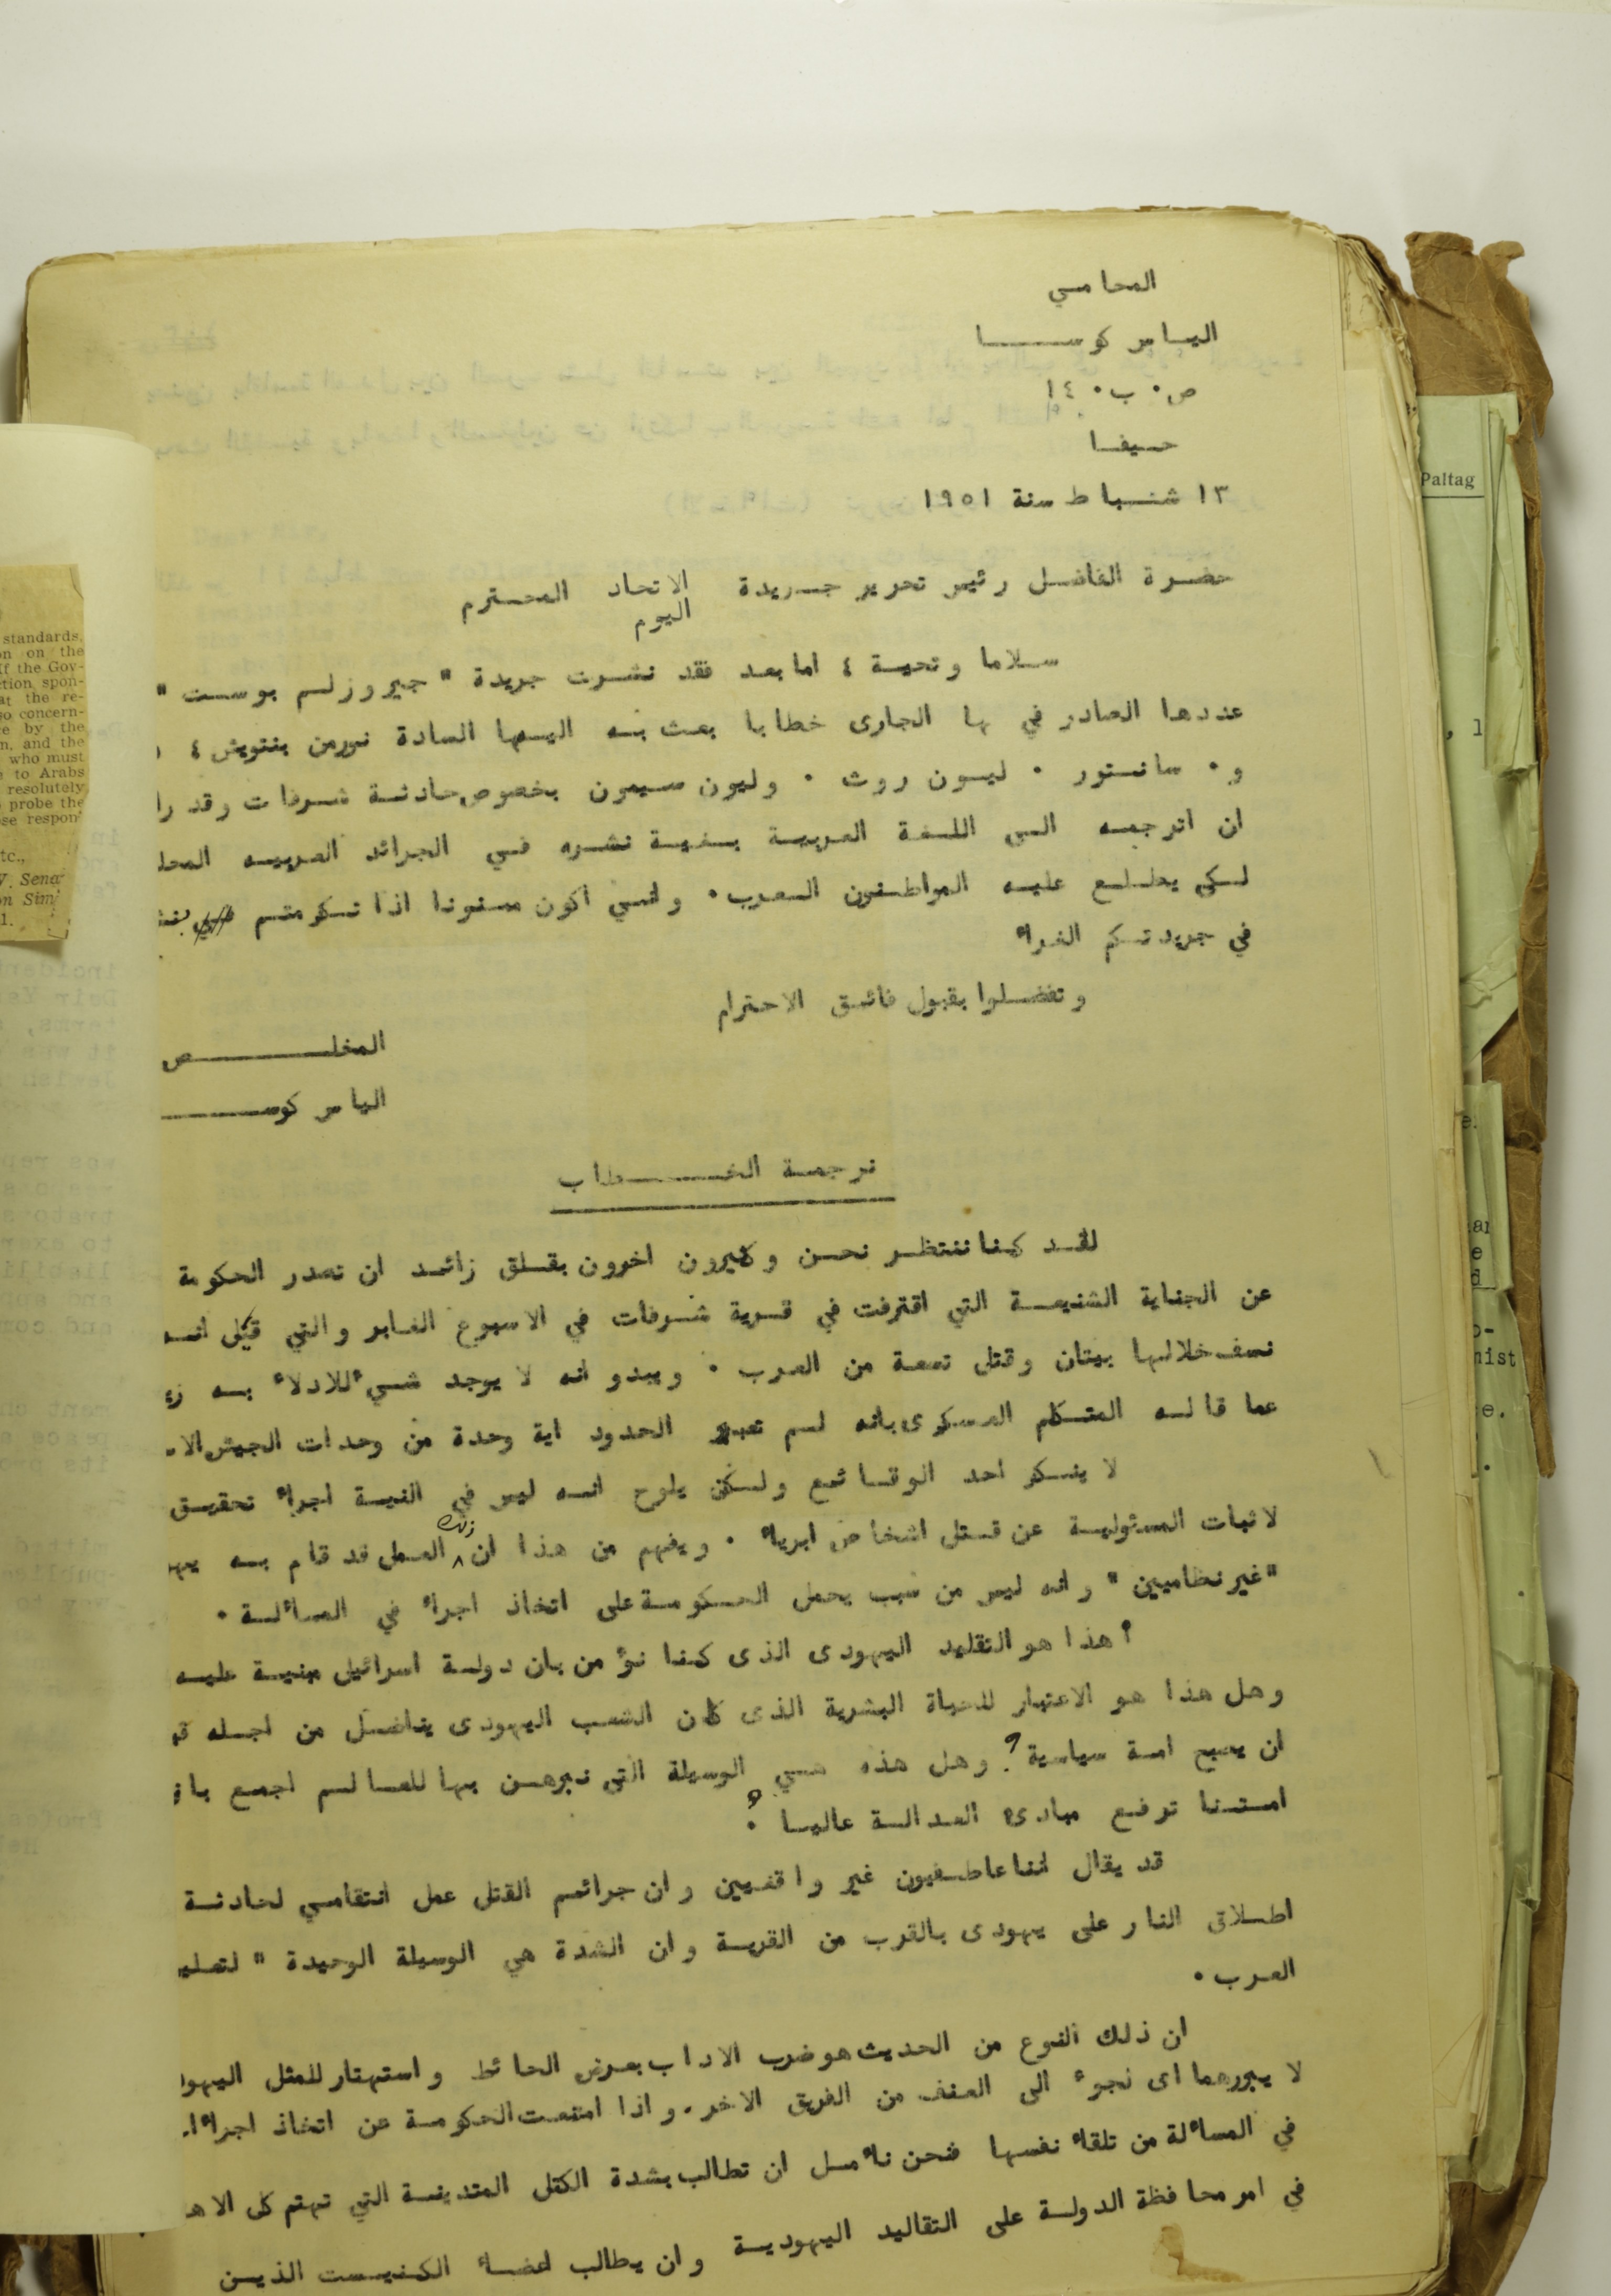 المحامي
الياس كوسا
ص. ب. ١٤
حيفا
١٣ شباط سنة ١٩٥١
حضرة الفاضل رئيس تحرير جريدة الاتحاد المحترم
اليوم
سلاما وتحية ٤ اما بعد فقد نشرت جريدة " جيروزلم بوست "
عددها الصادر في ها الجارى خطابا بعث به اليها السادة نورمن بنتويش ٤
و. سانتور . ليون روث . وليون سيمون بخصوص حادثة شرفات وقد را
ان اترجمه الى اللغة العربية بغية نشره في الجرائد العربيه المحل
لكي يطلع عليه المواطنون العرب. وانني اكون ممنونا اذا تكرمتم
في جريدتكم الغراء
وتفضلوا بقبول فائق الاحترام
المخلص
الياس كوس
ترجمة الخطاب
لقد كنا ننتظر نحن وكثيرون اخرون بقلق زائد ان تصدر الحكومة
عن الجناية الشنيعة التي اقترفت في قرية شرفات في الاسبوع الغابر والتي قيل انه
نسف خلالها بيتان وقتل تسعة من العرب . ويبدو انه لا يوجد شيء للادلاء به
عما قاله المتكلم العسكرى بانه لم تعبر الحدود اية وحدة من وحدات الجيش الا
لا ينكر احد الوقائع ولكن يلوح انه ليس في النية اجراء تحقيق
لاثبات المسئولية عن قتل اشخاص ابرياء . ويفهم من هذا ان ذلك العمل قد قام به يهو
"غير نظاميين" وانه ليس من سبب يحمل الحكومة على اتخاذ اجراء في المسألة .
أهذا هو التقليد اليهودى الذى كنا نؤمن بان دولة اسرائيل مبنية عليه
وهل هذا هو الاعتبار للحياة البشرية الذى كان الشعب اليهودى يناضل من اجله
ان يصبح امة سياسية؟ وهل هذه هي الوسيلة التى نبرهن بها للعالم اجمع با
امتنا ترفع مبادئ العدالة عاليا ؟
قد يقال اننا عاطفيون غير واقفيين وان جرائم القتل عمل انتقامي لحادثة
اطلاق النار على يهودى بالقرب من القرية وان الشدة هي الوسيلة الوحيدة " لتعلي
العرب .
ان ذلك النوع من الحديث هو ضرب الاداب بعرض الحائط واستهتار للمثل اليهو
لا يبررهما اى نجوء الى العنف من الفريق الاخر. واذا امتنعت الحكومة عن اتخاذ اجراءا
في المسألة من تلقاء نفسها فنحن نأمل ان تطالب بشدة الكتل المتدينة التي تهتم كل الاه
في امر محافظة الدولة على التقاليد اليهودية وان يطالب اعضاء الكنيست الذين
standards,
on on the
If the Gov-
ction spon-
at the re-
so concern-
te by the
n, and the
who must
e to Arabs
resolutely
probe the
ose respon-
tc.,
V. Sena
on Sim
1.
Paltag
nist